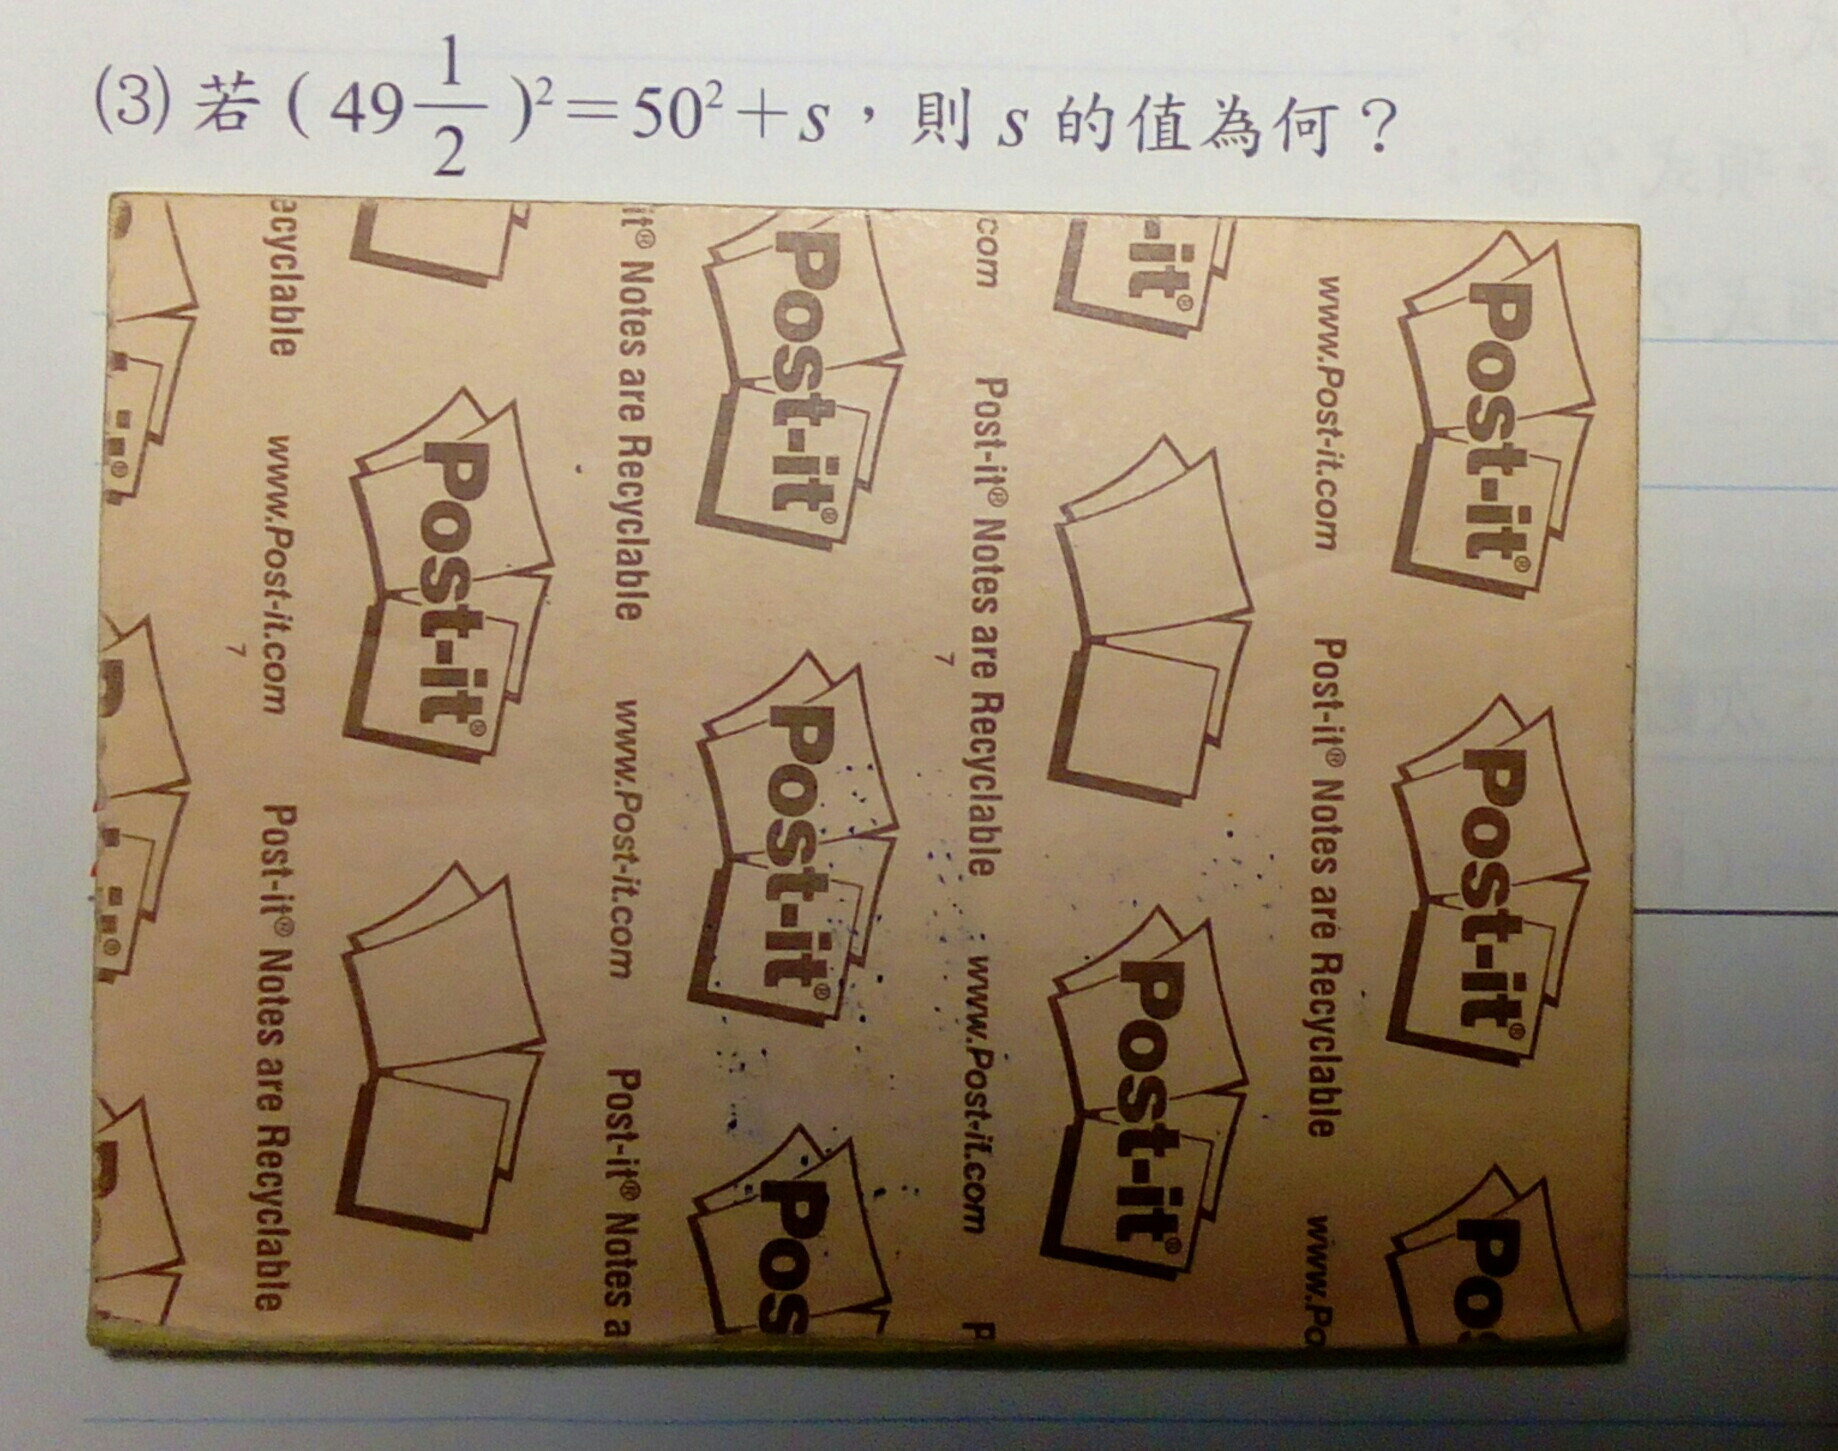 (3) 若 ( 49 1/2 )² = 50² + s，則 s 的值為何？
ecyclable www.Post-it.com Post-it® Notes are Recyclable
Post-it®
it® Notes are Recyclable www.Post-it.com Post-it® Notes a
Post-it®
Post-it®
Pos
com Post-it® Notes are Recyclable www.Post-it.com P
-it®
Post-it®
www.Post-it.com Post-it® Notes are Recyclable www.Po
Post-it®
Post-it®
Pos
7
7